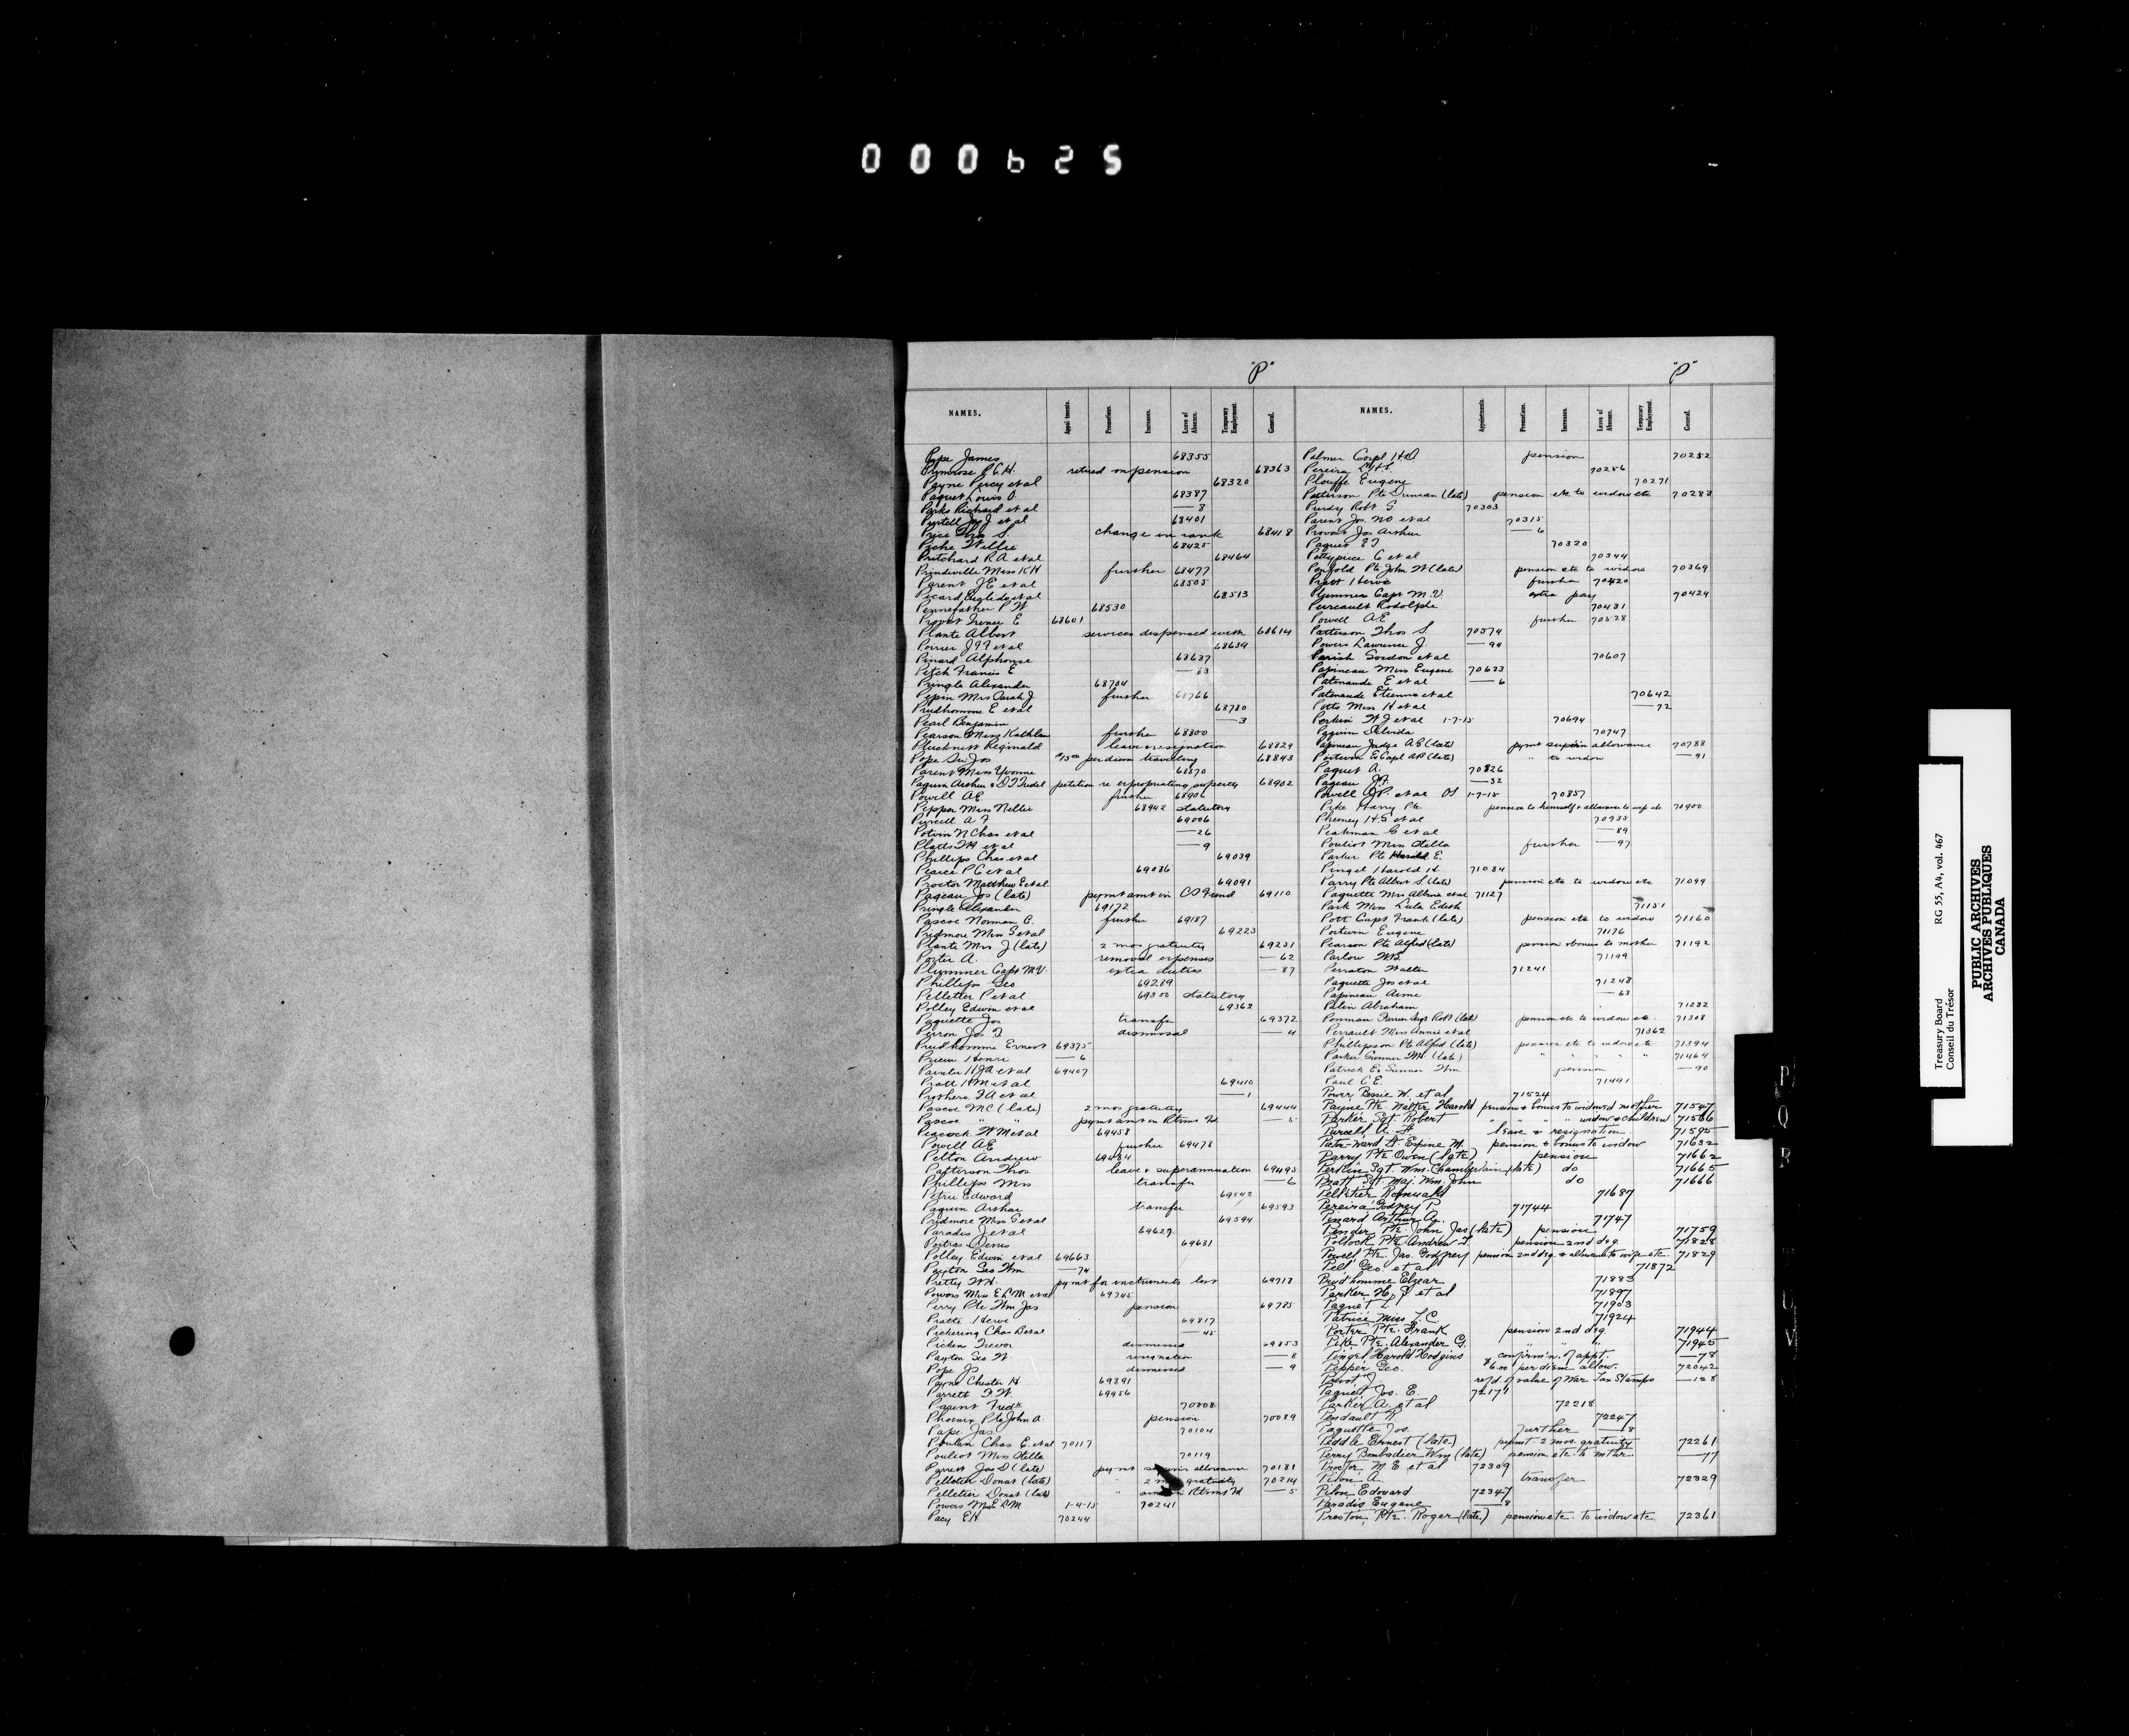 000625
"P"
NAMES. Appointments. Promotions. Increases. Leave of Absence. Temporary Employment. General.
Pope James 68355
Primrose P.C.H. retired on pension 68363
Payne Percy et al 68320
Paquet Louis O. 68387
Parks Richard et al —8
Purtell Jas J et al 68401
Price Thos S. change in rank 68418
Piche Willie 68425
Pritchard R A et al 68464
Prindiville Miss K H further 68477
Parent J E et al 68505
Picard Euglide et al 68513
Pennefather P W 68530
Provost Irenee E 68601
Plante Albert services dispensed with 68614
Poirier J F F et al 68639
Pinard Alphonse 68637
Petch Francis E —63
Pringle Alexander 68704
Pepin Mrs Sarah J further 68766
Prudhomme E et al 68780
Pearl Benjamin —3
Pearson Miss Kathleen further 68800
Plucknett Reginald leave & resignation 68829
Pope Sir Jos $15.00 per diem travelling 68843
Parent Miss Yvonne 68870
Paquin Archer & D T Trudel petition re expropriating property 68902
Powell A E further 68906
Pepper Miss Nellie 68942 statutory
Purcell A F 69006
Potvin N Chas et al —26
Platts F H et al —9
Phillips Chas et al 69039
Pearce P C et al 69086
Proctor Matthew E et al 69091
Pageau Jos (late) paymt amt in CS Fund 69110
Pringle Alexander 69172
Pascoe Norman C. further 69187
Pridmore Miss S et al 69223
Plante Mrs J (late) 2 mos gratuity 69231
Porter A. removal expenses —62
Plummer Capt M V. extra duties —87
Phillips Geo 69289
Pelletier P et al 69300 statutory
Polley Edwin et al 69362
Paquette Jos transfer 69372
Perron Jos T. dismissal —4
Prudhomme Ernest 69375
Prieur Henri —6
Painter H J A et al 69407
Pratt H M et al 69410
Prothero F A et al —1
Pascoe M C (late) 2 mos gratuity 69444
Pascoe " " paymt amt in Rtrmt Fd —5
Peacock W M et al 69458
Powell A E further 69478
Pelton Andrew 69484
Patterson Thos leave & superannuation 69493
Phillips Mrs transfer —6
Petrie Edward 69542
Paquin Arthur transfer 69593
Pridmore Miss S et al 69594
Paradis J et al 69629
Poitras Denis 69631
Polley Edwin et al 69663
Payton Geo Wm —74
Pretty W H. paymt for instruments lost 69718
Powers Miss E L M et al 69745
Perry Pte Wm Jas pension 69785
Pratte Herve 69817
Pickering Chas B et al —45
Picken Trevor dismissal 69853
Payton Geo W. resignation —8
Pope J S dismissed —9
Payne Chester H 69891
Parrett F W. 69956
Parent Fredk 70008
Phoenix Pte John A. pension 70089
Pape Jas. 70104
Poulin Chas E. et al 70117
Pouliot Miss Stella 70119
Parrett Jas D (late) paymt superan allowance 70181
Pelletier Donat (late) " 2 mos gratuity 70214
Pelletier Donat (late) " amt in Rtrmt Fd —5
Powers Miss E L M 1-4-15 70241
Pacy E H 70244
"P"
NAMES. Appointments. Promotions. Increases. Leave of Absence. Temporary Employment. General.
Palmer Corpl H O pension 70252
Pereira L H S. 70256
Plouffe Eugene 70271
Patterson Pte Duncan (late) pension etc to widow etc 70288
Purdy Robt G. 70303
Parent Jos. N O et al 70315
Provost Jos Arthur —6
Paquet E T 70320
Pettypiece C et al 70344
Penfold Pte John W (late) pension etc to widow 70369
Pratt Herve further 70420
Plummer Capt M. V. extra pay 70424
Perreault Rodolphe 70431
Powell A E further 70528
Patterson Thos S. 70574
Powers Lawrence J. —94
Parish Gordon et al 70607
Papineau Miss Eugene 70633
Patenaude E et al —6
Patenaude Etienne et al 70642
Potts Miss H et al —72
Perkin W J et al 1-7-15 70694
Paquin Delvida 70747
Papineau Judge A E (late) paymt super'n allowance 70788
" to widow —91
Paquet A. 70826
Pageau J. F. —32
Powell J. P. et al 1-7-15 70857
Pike Harry Pte. pension to himself & allowance to wife etc 70900
Phemey H. G et al 70933
Peakman C et al —89
Pouliot Miss Stella further —97
Parker Pte Harold E.
Pingel Harold H. 71084
Parry Pte Albert S. (late) pension etc to widow etc 71099
Paquette Mrs Albina et al 71127
Park Miss Lula Edith 71151
Pott Capt Frank (late) pension etc to widow 71160
Portwin Eugene 71176
Pearson Pte Alfred (late) pension & bonus to mother 71192
Parlow W. B. 71199
Perraton Walter 71241
Paquette Jos et al 71248
Papineau Aime —63
Palin Abraham 71282
Penman Robt (late) pension etc to widow etc. 71308
Perrault Miss Annie et al 71362
Phillipson Pte Alfred (late) pension etc to widow etc 71394
Parker Gunner Wm (late) " " " " " 71464
Patrick Ex Gunner Wm pension —90
Paul C E. 71491
Power, Bessie W. et al 71524
Payne Pte. Walter Harold pension & bonus to widowed mother 71547
Parker, Sgt. Robert " " " widow & children 71566
Purcell A. F. leave & resignation 71595
Pate-Ward Lt. Espine M. pension & bonus to widow 71632
Parry Pte Owen (late) pension 71662
Perkin Sgt. Wm. Chamberlain (late) do 71665
Pratt Sgt Maj. Wm. John do 71666
Pelletier Romuald 71687
Pereira Godfrey P. 71744
Penard Arthur A. 71747
Pender Pte. John Jas (late) pension 71759
Pollock Pte Andrew T. pension 2nd deg. 71828
Powell Pte. Jas. Godfrey pension 2nd deg. & allowance to wife etc. 71829
Pelt Geo et al 71872
Prud'homme Elzear 71883
Parker H. J. et al 71897
Paquet L. 71903
Patrice Miss L. C. 71924
Porter Pte. Frank pension 2nd deg. 71944
Pike Pte. Alexander G. " " " 71945
Pingel Harold Hodgins confirm'n. of appt. —78
Pepper Geo. $6.00 per diem allow. 72042
Pivot, J. ref'd. of value of War Tax Stamps —128
Paquet Jos. E. 72171
Parker A. et al 72218
Pendault N. 72247
Paquette Jos. Further —8
Peddle Ernest (late) paymt. 2 mos. gratuity 72261
Perry Bombadier Wm (late) pension etc. to mother —77
Procter M E. et al 72309
Pilon A. transfer 72329
Pilon Edouard 72347
Paradis Eugene —8
Preston, Pte. Roger (late) pension etc. to widow etc. 72361
P
Q
R
Treasury Board RG 55, A4, vol. 467
Conseil du Trésor
PUBLIC ARCHIVES
ARCHIVES PUBLIQUES
CANADA